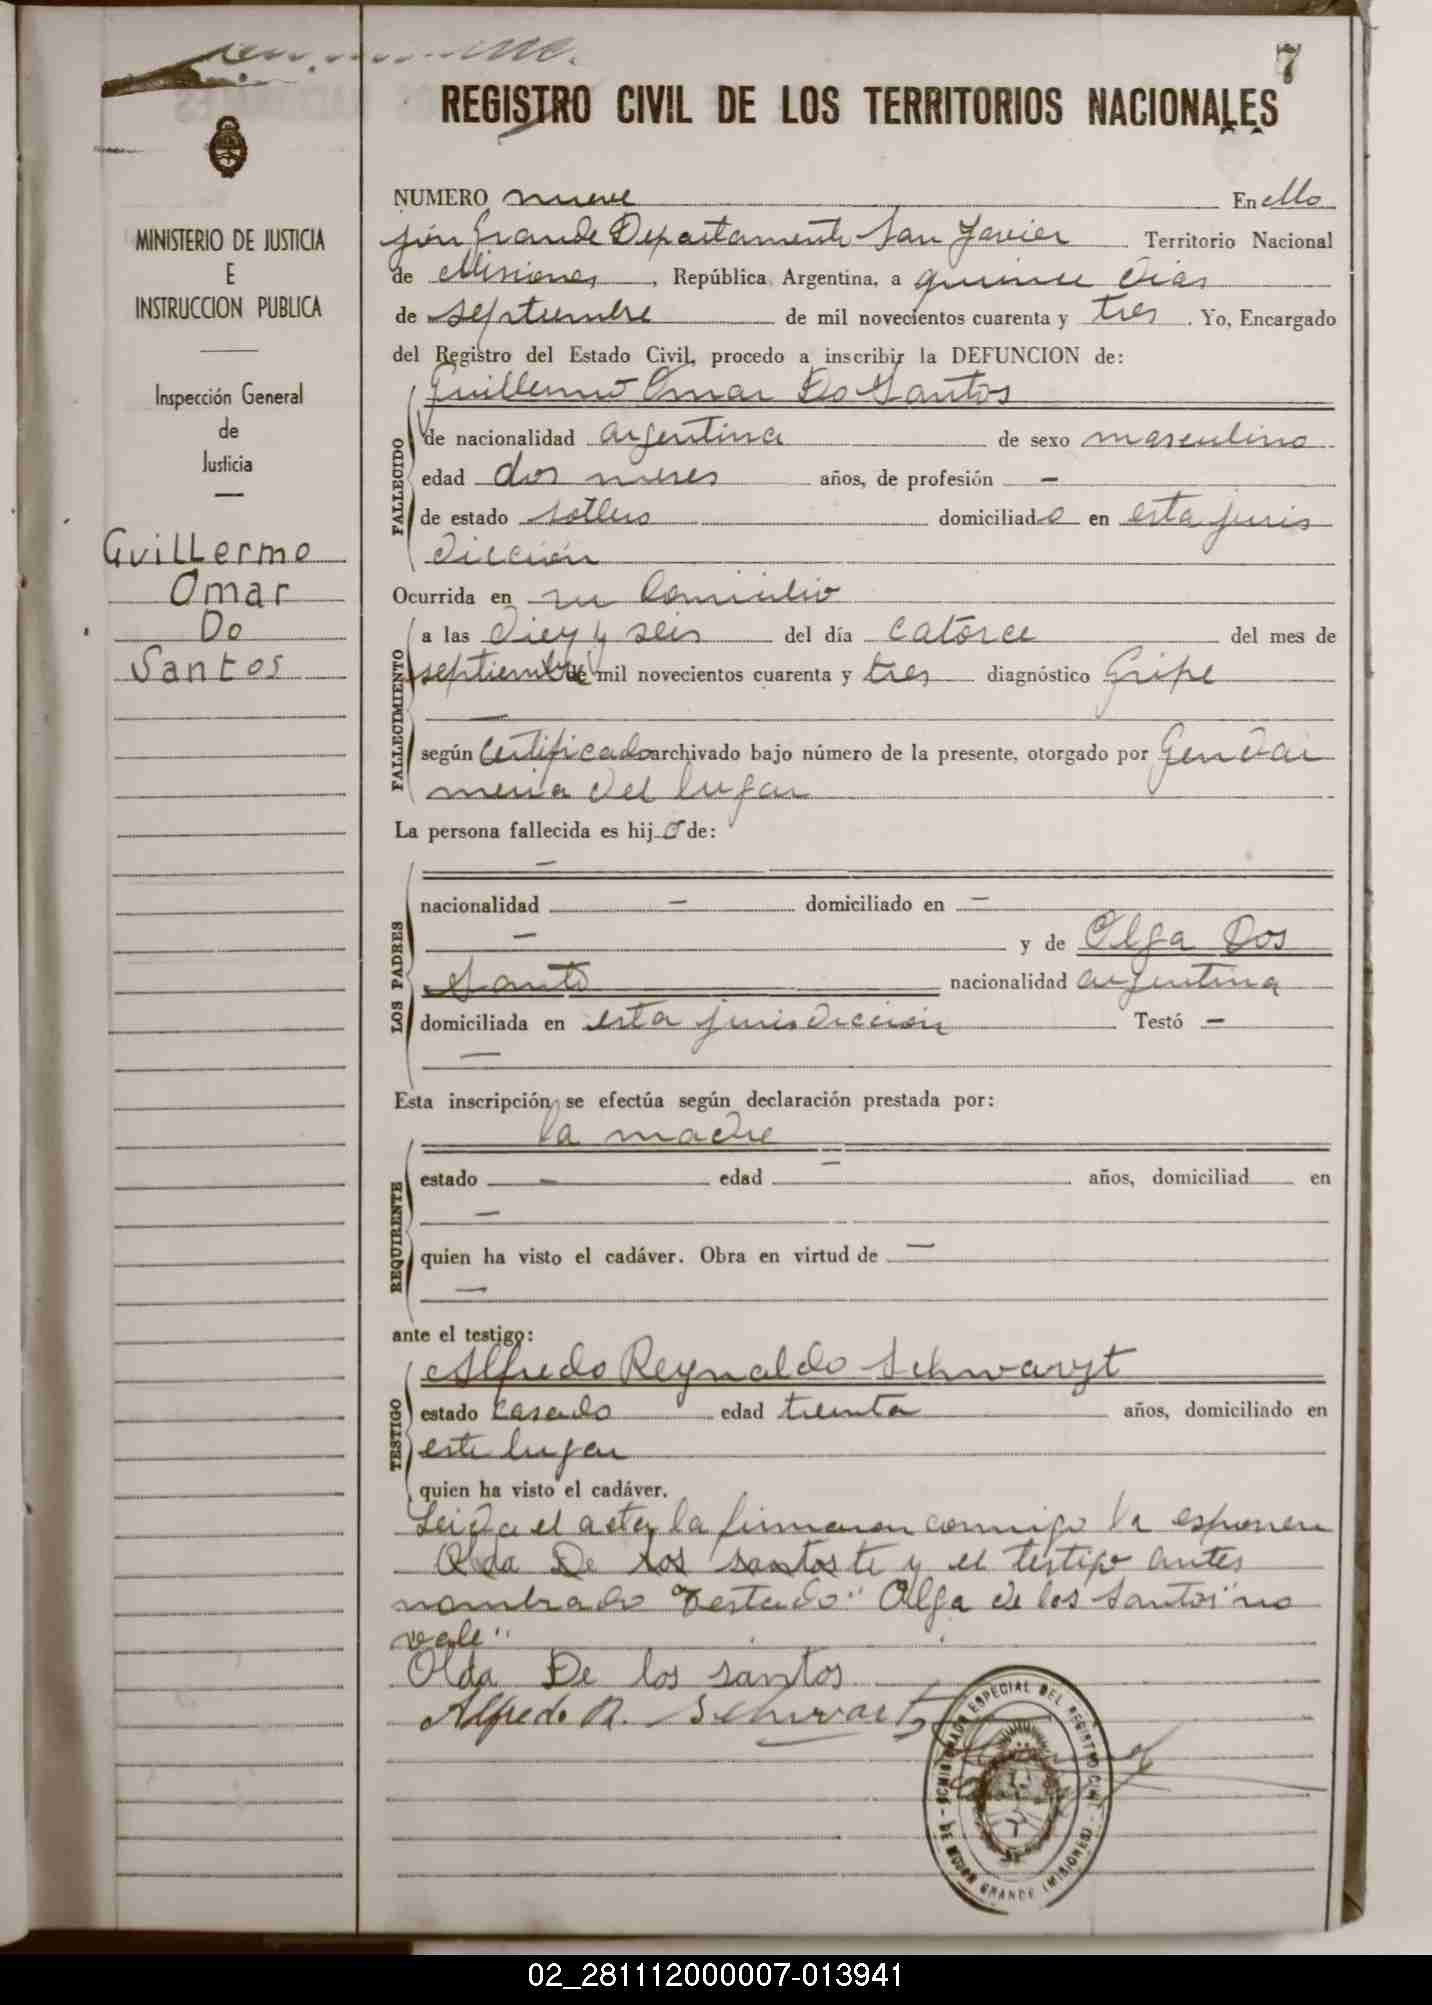 7
REGISTRO CIVIL DE LOS TERRITORIOS NACIONALES
MINISTERIO DE JUSTICIA
E
INSTRUCCION PUBLICA
Inspección General
de
Justicia
Guillermo
Omar
Do
Santos
NUMERO nueve En Mo
jón Grande Departamento San Javier Territorio Nacional
de Misiones, República Argentina, a quince dias
de septiembre de mil novecientos cuarenta y tres. Yo, Encargado
del Registro del Estado Civil, procedo a inscribir la DEFUNCION de:
Guillermo Omar Do Santos
FALLECIDO
de nacionalidad argentina de sexo masculino
edad dos meses años, de profesión —
de estado soltero domiciliado en esta juris
dicción
Ocurrida en su domicilio
FALLECIMIENTO
a las diez y seis del día catorce del mes de
septiembre de mil novecientos cuarenta y tres diagnóstico Gripe
—
según Certificado archivado bajo número de la presente, otorgado por Gendar
meria del lugar
La persona fallecida es hijo de:
LOS PADRES
—
nacionalidad — domiciliado en —
— y de Olga Dos
Santo nacionalidad argentina
domiciliada en esta jurisdicción Testó —
—
Esta inscripción, se efectúa según declaración prestada por:
REQUIRENTE
la madre
estado — edad — años, domiciliad en
—
quien ha visto el cadáver. Obra en virtud de —
—
ante el testigo:
TESTIGO
Alfredo Reynaldo Schwarzt
estado casado edad treinta años, domiciliado en
este lugar
quien ha visto el cadáver.
Leida el acta, la firmaron conmigo la esponen
Olda De los santos te y el testigo antes
nombrado Testado "Olga de los Santos" no
vale"
Olda De los santos
Alfredo R. Schwartz
COMISIONADO ESPECIAL DEL REGISTRO CIVIL
DE MOJON GRANDE (MISIONES)
02_281112000007-013941